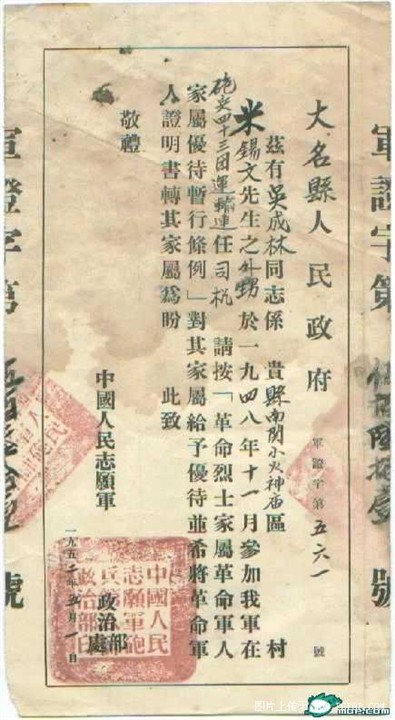 大名縣人民政府
軍證字第五六一號
茲有吳成林同志係 貴縣南關小火神庙區 村
米錫文先生之外甥於一九四八年十一月參加我軍在
砲兵四十三团運輸連任司机 請按「革命烈士家屬革命軍人
家屬優待暫行條例」對其家屬給予優待並希將革命軍
人證明書轉其家屬爲盼 此致
敬禮
中國人民志願軍
政治部
處
一九五二年五月一日
軍證字第
號
軍證字第
號
中國人民
志願軍砲
政治部印
MOP.COM